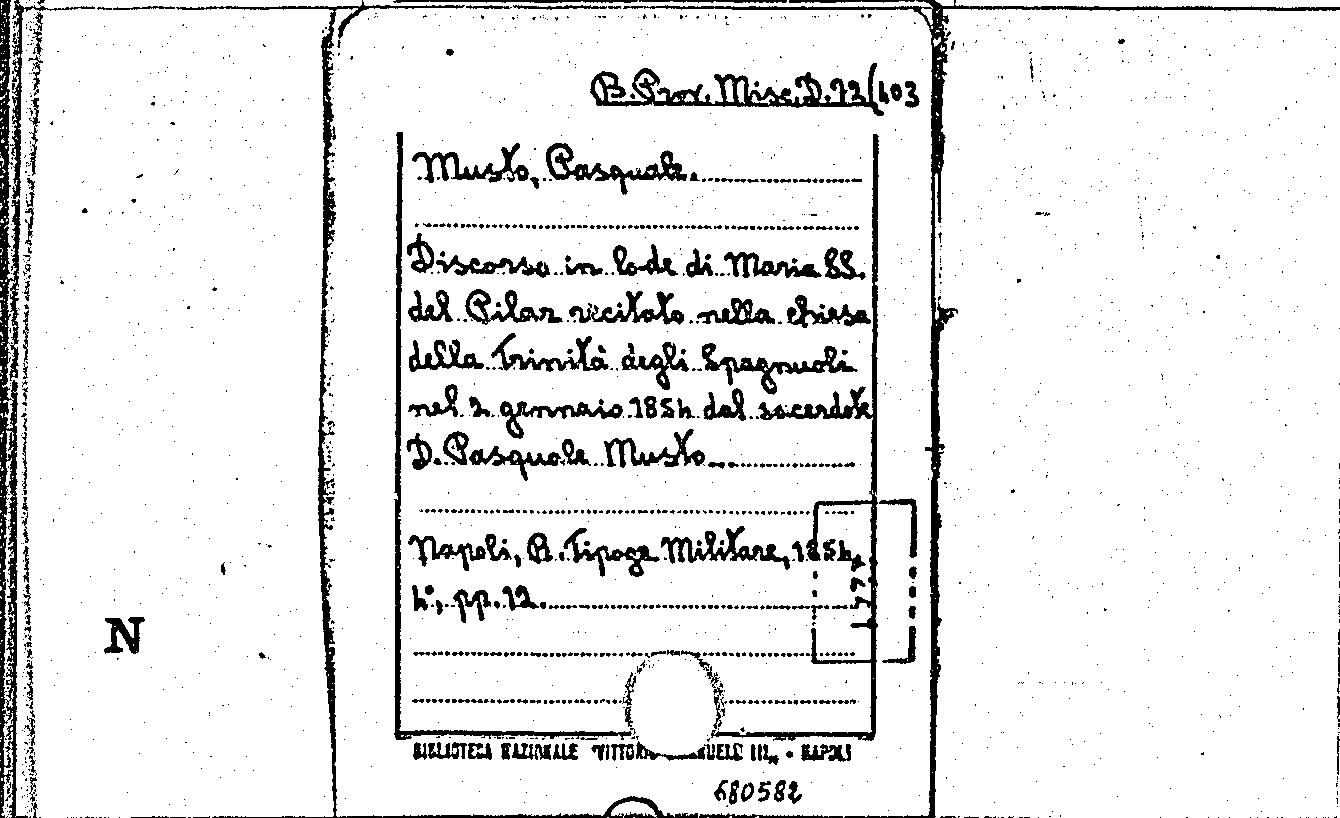 B. Prov. Misc. D. 72(403
Musto, Pasquale.
Discorso in lode di Maria SS.
del Pilar recitato nella chiesa
della Trinità degli Spagnuoli
nel 2 gennaio 1854 dal sacerdote
D. Pasquale Musto...
Napoli, R. Tipogr. Militare, 1854
4°, pp. 12.
N
BIBLIOTECA NAZIONALE "VITTORIO III„ - NAPOLI
680582